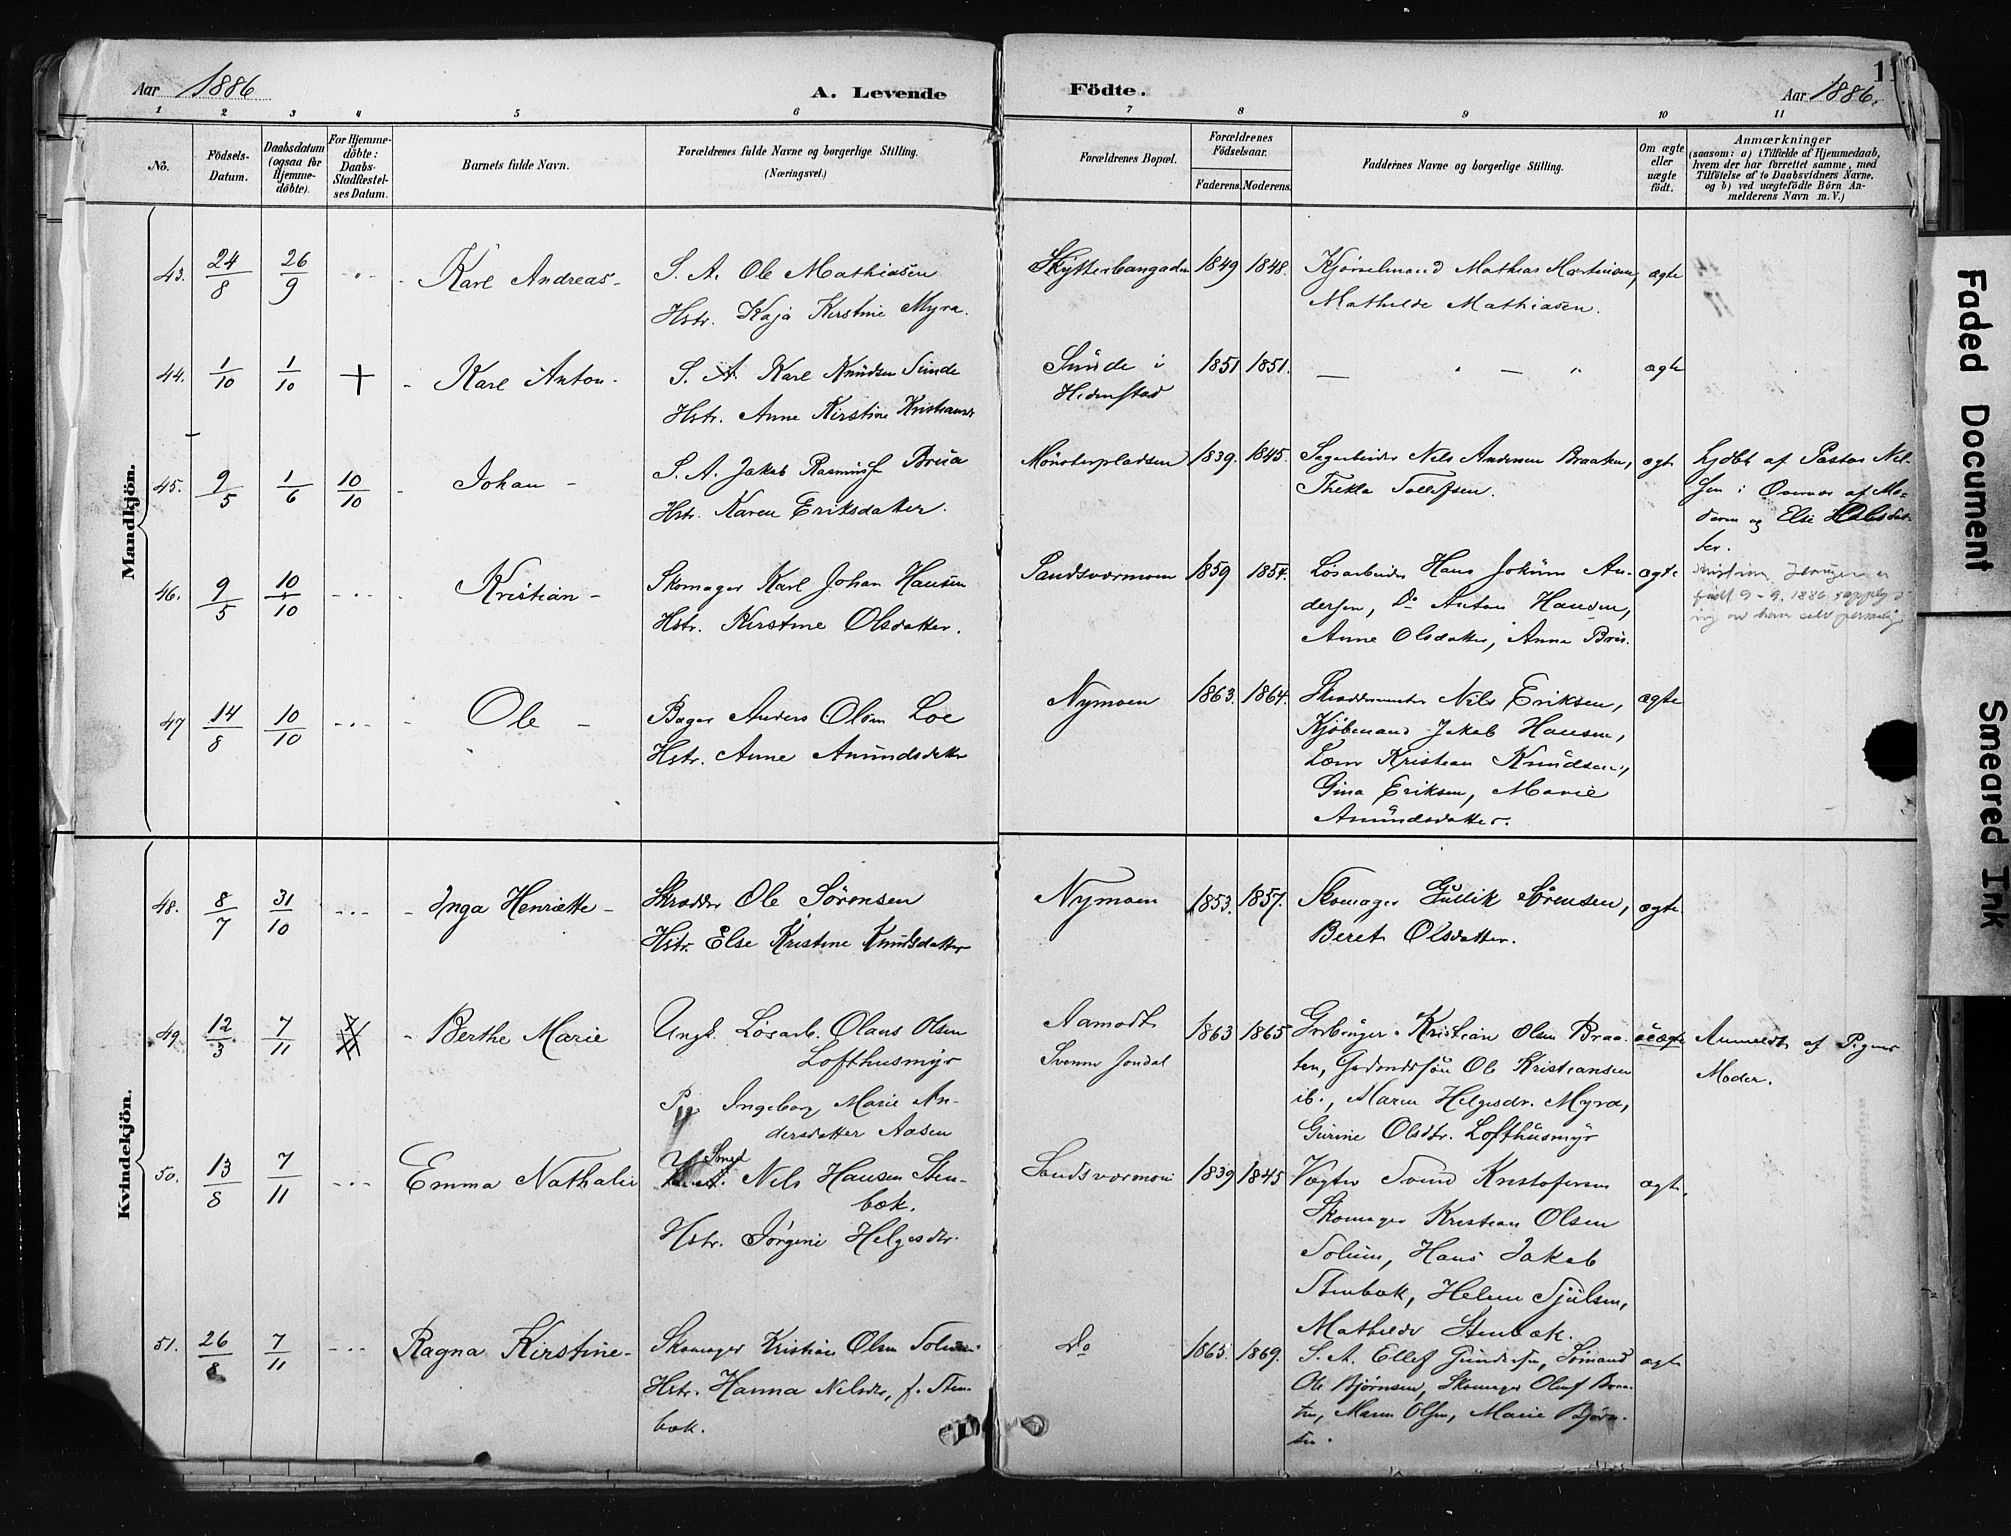 Aar 1886
A. Levende
Födte.
Aar 1886.
11
1 2 3 4 5 6 7 8 9 10 11
No.
Födsels-
Datum.
Daabsdatum
(ogsaa for
Hjemme-
döbte).
For Hjemme-
döbte:
Daabs-
Stadfæstel-
ses Datum.
Barnets fulde Navn.
Forældrenes fulde Navne og borgerlige Stilling.
(Næringsvei.)
Forældrenes Bopæl.
Forældrenes
Födselsaar.
Faderens. Moderens.
Faddernes Navne og borgerlige Stilling.
Om ægte
eller
uægte
födt.
Anmærkninger
(saasom: a) i Tilfælde af Hjemmedaab,
hvem der har forrettet samme, med
Tilföielse af to Daabsvidners Navne,
og b) ved uægtefödte Börn An-
melderens Navn m. V.)
Mandkjön.
43. 24/8 26/9 Karl Andreas
S. A. Ole Mathiasen
Hstr. Kaja Kirstine Myra.
1849 1848.
Kjørselmand Mathias Martinsen,
Mathilde Mathiasen.
ægte
44. 1/10 1/10 + Karl Anton
S. A. Karl Knudsen Sunde
Hstr. Anne Kirstine Kristiansd.
Sunde i
Hedenstad
1851 1851.
ægte
45. 9/5 1/6 10/10 Johan
S. A. Jakob Rasmussen Brua
Hstr. Karen Eriksdatter.
Mønsterpladsen 1839. 1845.
Sagarbeider Nels Andersen Braaten,
Thekla Tollefsen.
ægte
hjdbt af Pastor Nel-
sen i Overvær af Mo-
deren og Else
ter.
46. 9/5 10/10 Kristian
Skomager Karl Johan Hansen
Hstr. Kirstine Olsdatter.
Sandsværmoen 1859 1854.
Løsarbeider Hans Jokum An-
dersen, Do Anton Hansen,
Anne Olsdatter, Anna
ægte
født 9-9. 1886
47 14/8 10/10 Ole
Bager Anders Olsen Loe
Hstr. Anne Amundsdatter
Nymoen 1863. 1864.
Skræddermester Nils Eriksen,
Kjøbmand Jakob Hansen,
Kristian Knudsen,
Gina Eriksen, Marie
Amundsdatter.
ægte
Kvindekjön.
48. 8/7 31/10 Inga Henriette
Skrædder Ole Sørensen
Hstr. Else Kristine Knudsdatter
Nymoen 1853. 1857.
Skomager Gullik Sørensen,
Beret Olsdatter.
ægte
49 12/3 7/11 Berthe Marie
Ungk. Løsarb. Olaus Olsen
Lofthusmyr
Pige Ingeborg Marie An-
dersdatter Aasen
Aamodt
Svenne Jondal
1863 1865
Grubearb. Kristian Olsen Braa-
ten, Gaardmandssøn Ole Kristiansen
ib., Maren Helgesdr. Myra,
Gurine Olsdtr. Lofthusmyr
uægte
Anmeldt af Pigens
Moder.
50. 13/8 7/11 Emma Nathalie
Smed Nils Hansen Sten-
bæk.
Hstr. Jørgine Helgesdtr.
Sandsværmoen 1839 1845
Vægter Svend Kristofersen
Skomager Kristian Olsen
Solum, Hans Jakob
Stenbæk, Helene Sjulsen,
Mathilde Stenbæk.
ægte
51. 26/8 7/11 Ragna Kirstine
Skomager Kristian Olsen Solum
Hstr. Hanna Nilsdtr, f. Sten-
bæk.
Do 1865. 1869.
S. A. Ellef Gundersen, Sømand
Ole Bjørnsen, Skomager Oluf Braa-
ten, Maren Olsen, Marie Bjørn-
sen.
ægte
Faded Document
Smeared Ink